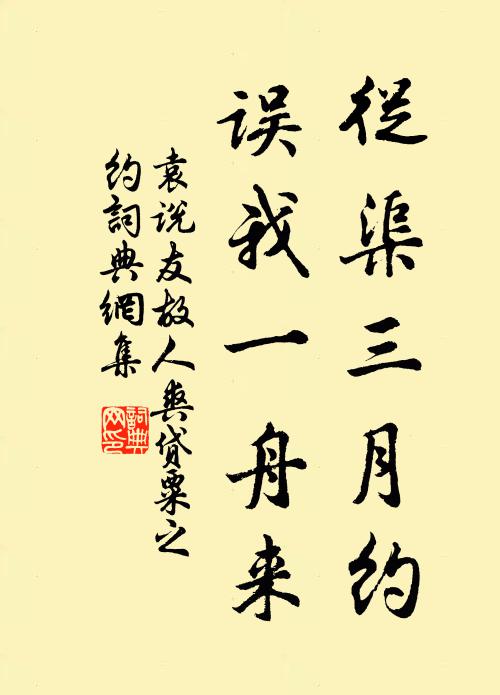 從渠三月約
误我一舟来
袁说友故人爽貸粟之
約詞典網集
詞典
网印